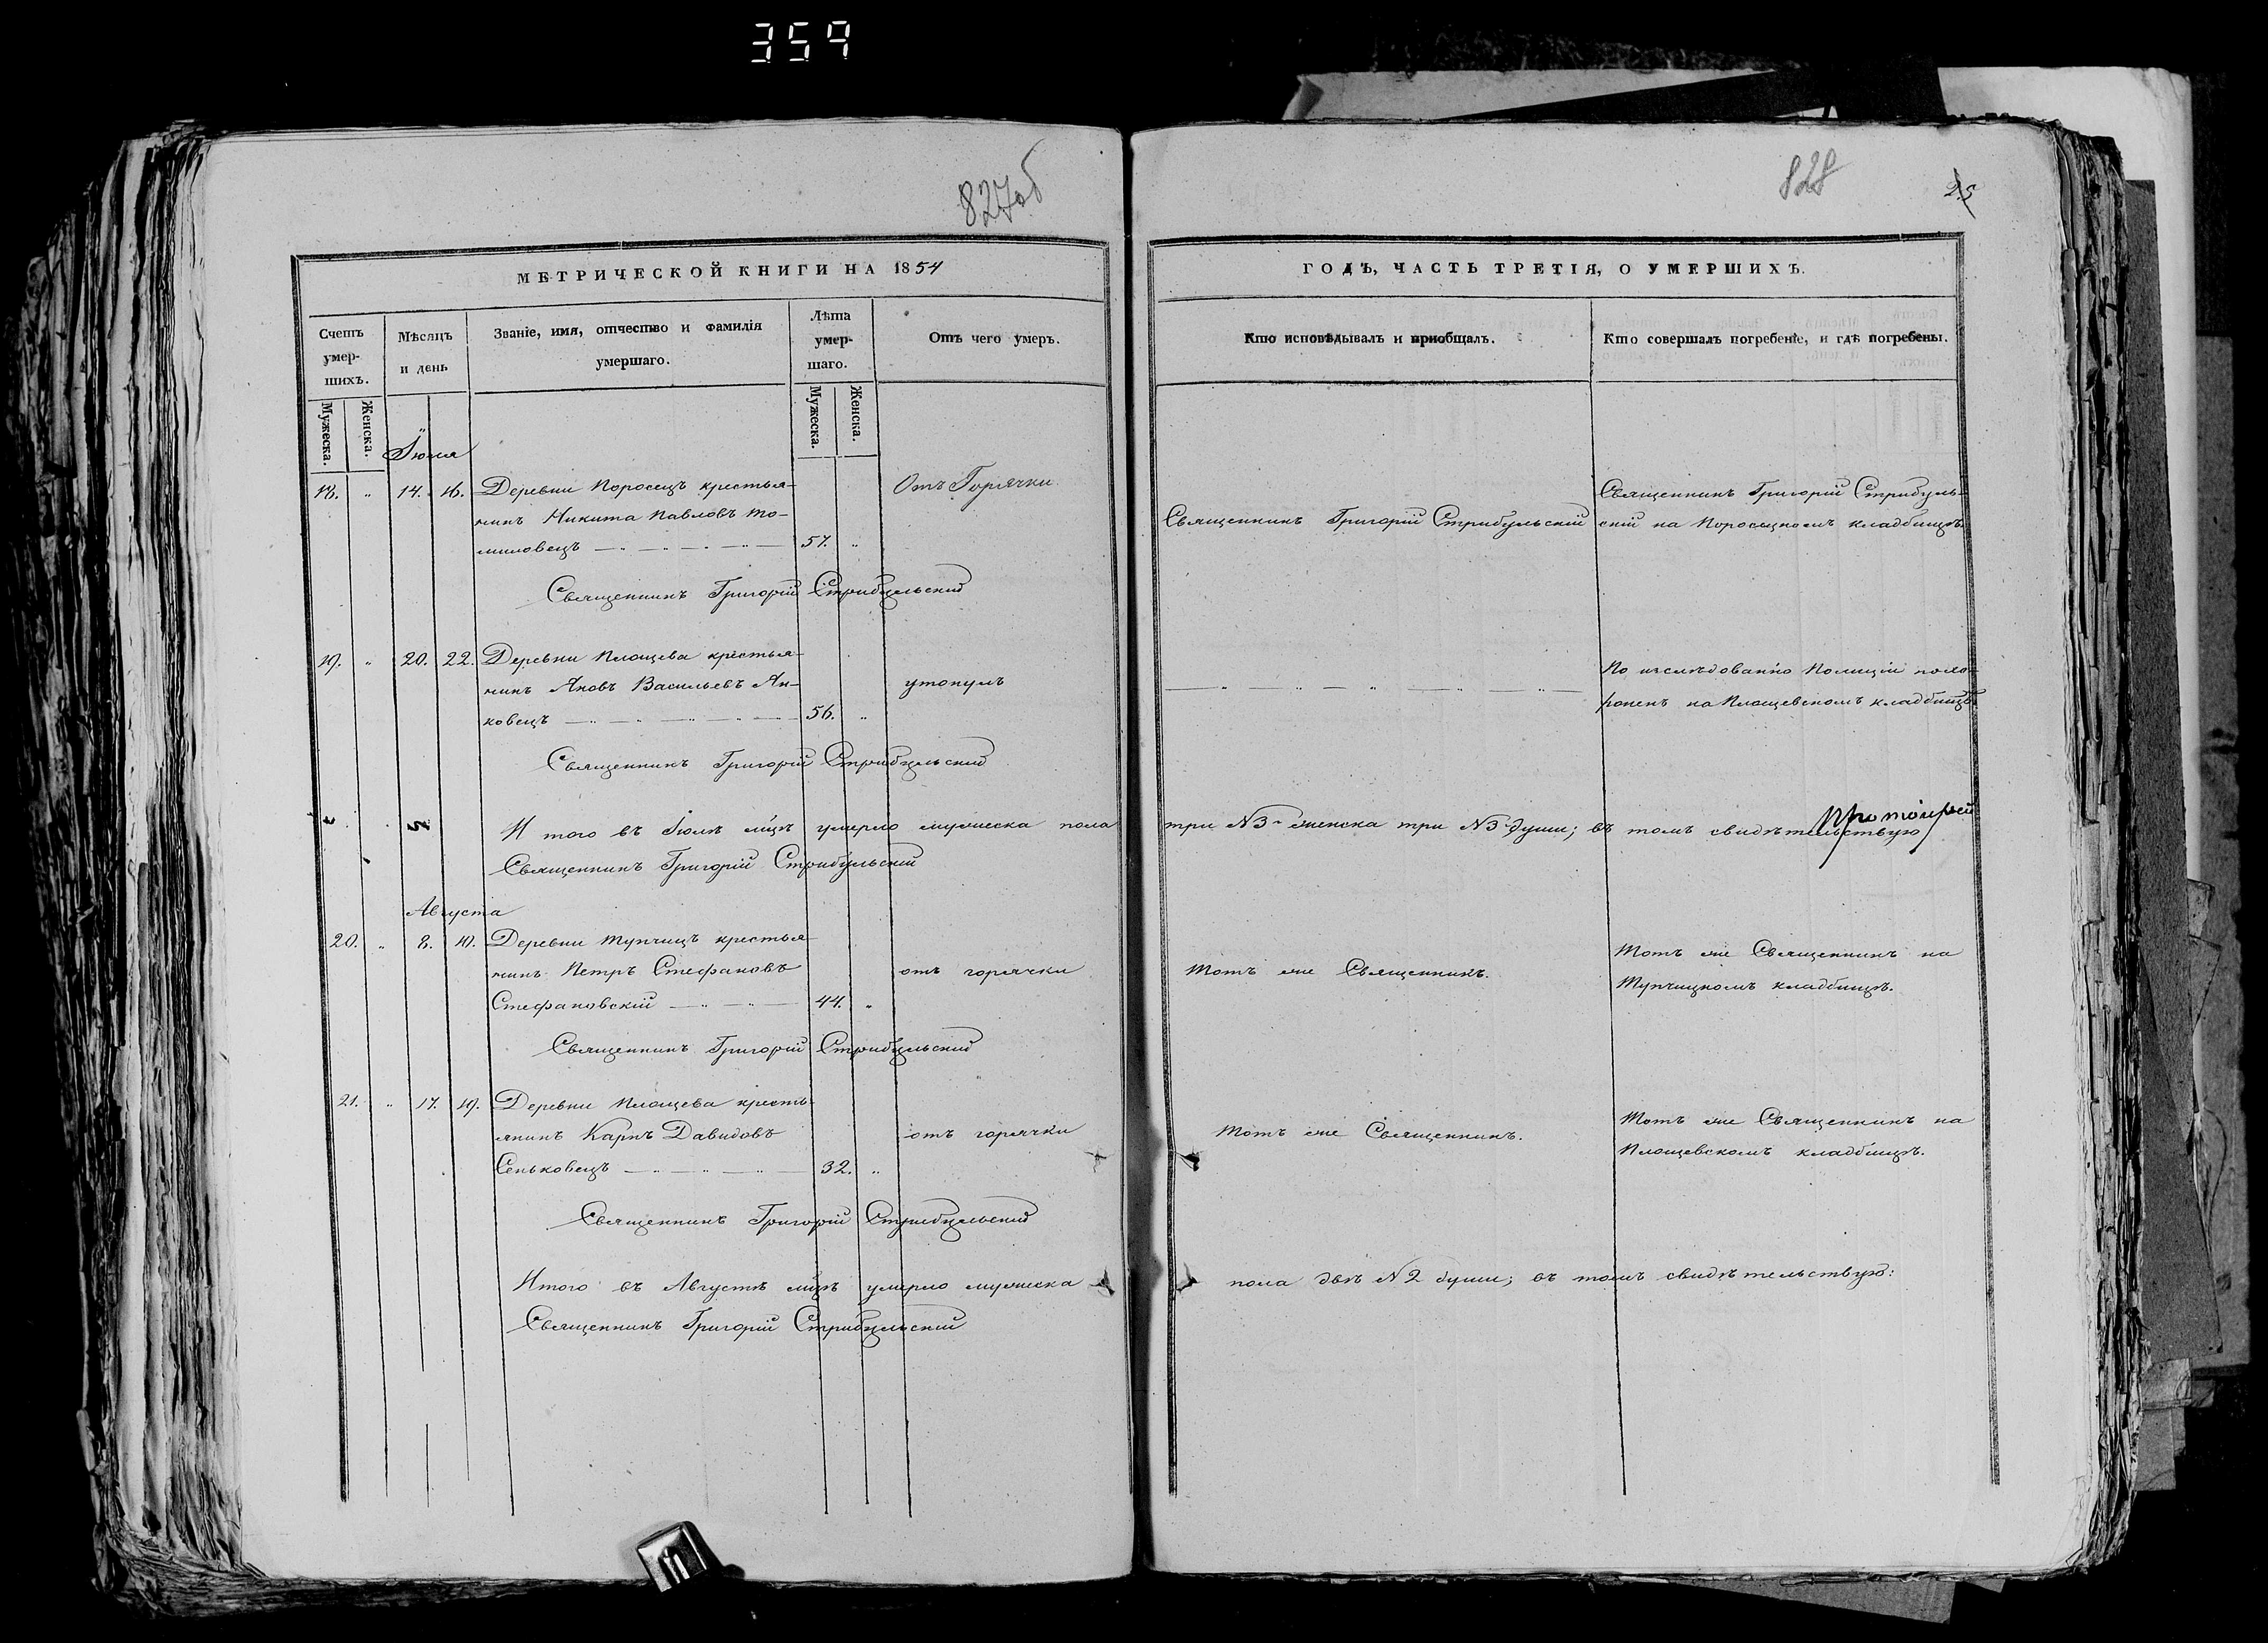 359
827об
МЕТРИЧЕСКОЙ КНИГИ НА 1854
Счетъ умер- шихъ.
Мѣсяцъ и день
Званіе, имя, отчество и фамилія умершаго.
Лѣта умер- шаго.
Отъ чего умеръ.
Мужеска. Женска. Мужеска. Женска.
Іюля
18. " 14. 16. Деревни Поросецъ крестья- Отъ Горячки
нинъ Никита Павловъ То-
миловецъ 57. "
Священникъ Григорій Стрибульскій
19. " 20. 22. Деревни Площева крестья-
нинъ Яковъ Васильевъ Ян- утонулъ
ковецъ 56. "
Священникъ Григорій Стрибульскій
И того въ Іюлѣ м҃цѣ умерло мужеска пола
Священникъ Григорій Стрибульскій
Августа
20. " 8. 10. Деревни Тупчицъ крестья-
нинъ Петръ Стефановъ отъ горячки
Стефановскій 44. "
Священникъ Григорій Стрибульскій
21. " 17. 19. Деревни Площева кресть-
янинъ Карпъ Давидовъ отъ горячки
Сеньковецъ 32. "
Священникъ Григорій Стрибульскій
Итого въ Августѣ м҃цѣ умерло мужеска
Священникъ Григорій Стрибульскій
828
25
ГОДЪ, ЧАСТЬ ТРЕТІЯ, О УМЕРШИХЪ.
Кто исповѣдывалъ и пріобщалъ.
Кто совершалъ погребеніе, и гдѣ погребены.
Священникъ Григорій Стрибуль-
Священникъ Григорій Стрибульскій
скій на Поросецкомъ кладбищѣ
По изслѣдованію Полиціи похо-
роненъ на Площевскомъ кладбищѣ
Протоіерей
три N3 женска три N3 души; въ томъ свидѣтельствую
Тотъ же Священникъ на
Тотъ же Священникъ.
Тупчицкомъ кладбищѣ.
Тотъ же Священникъ на
Тотъ же Священникъ.
Площевскомъ кладбищѣ.
пола двѣ N2 души; въ томъ свидѣтельствую: